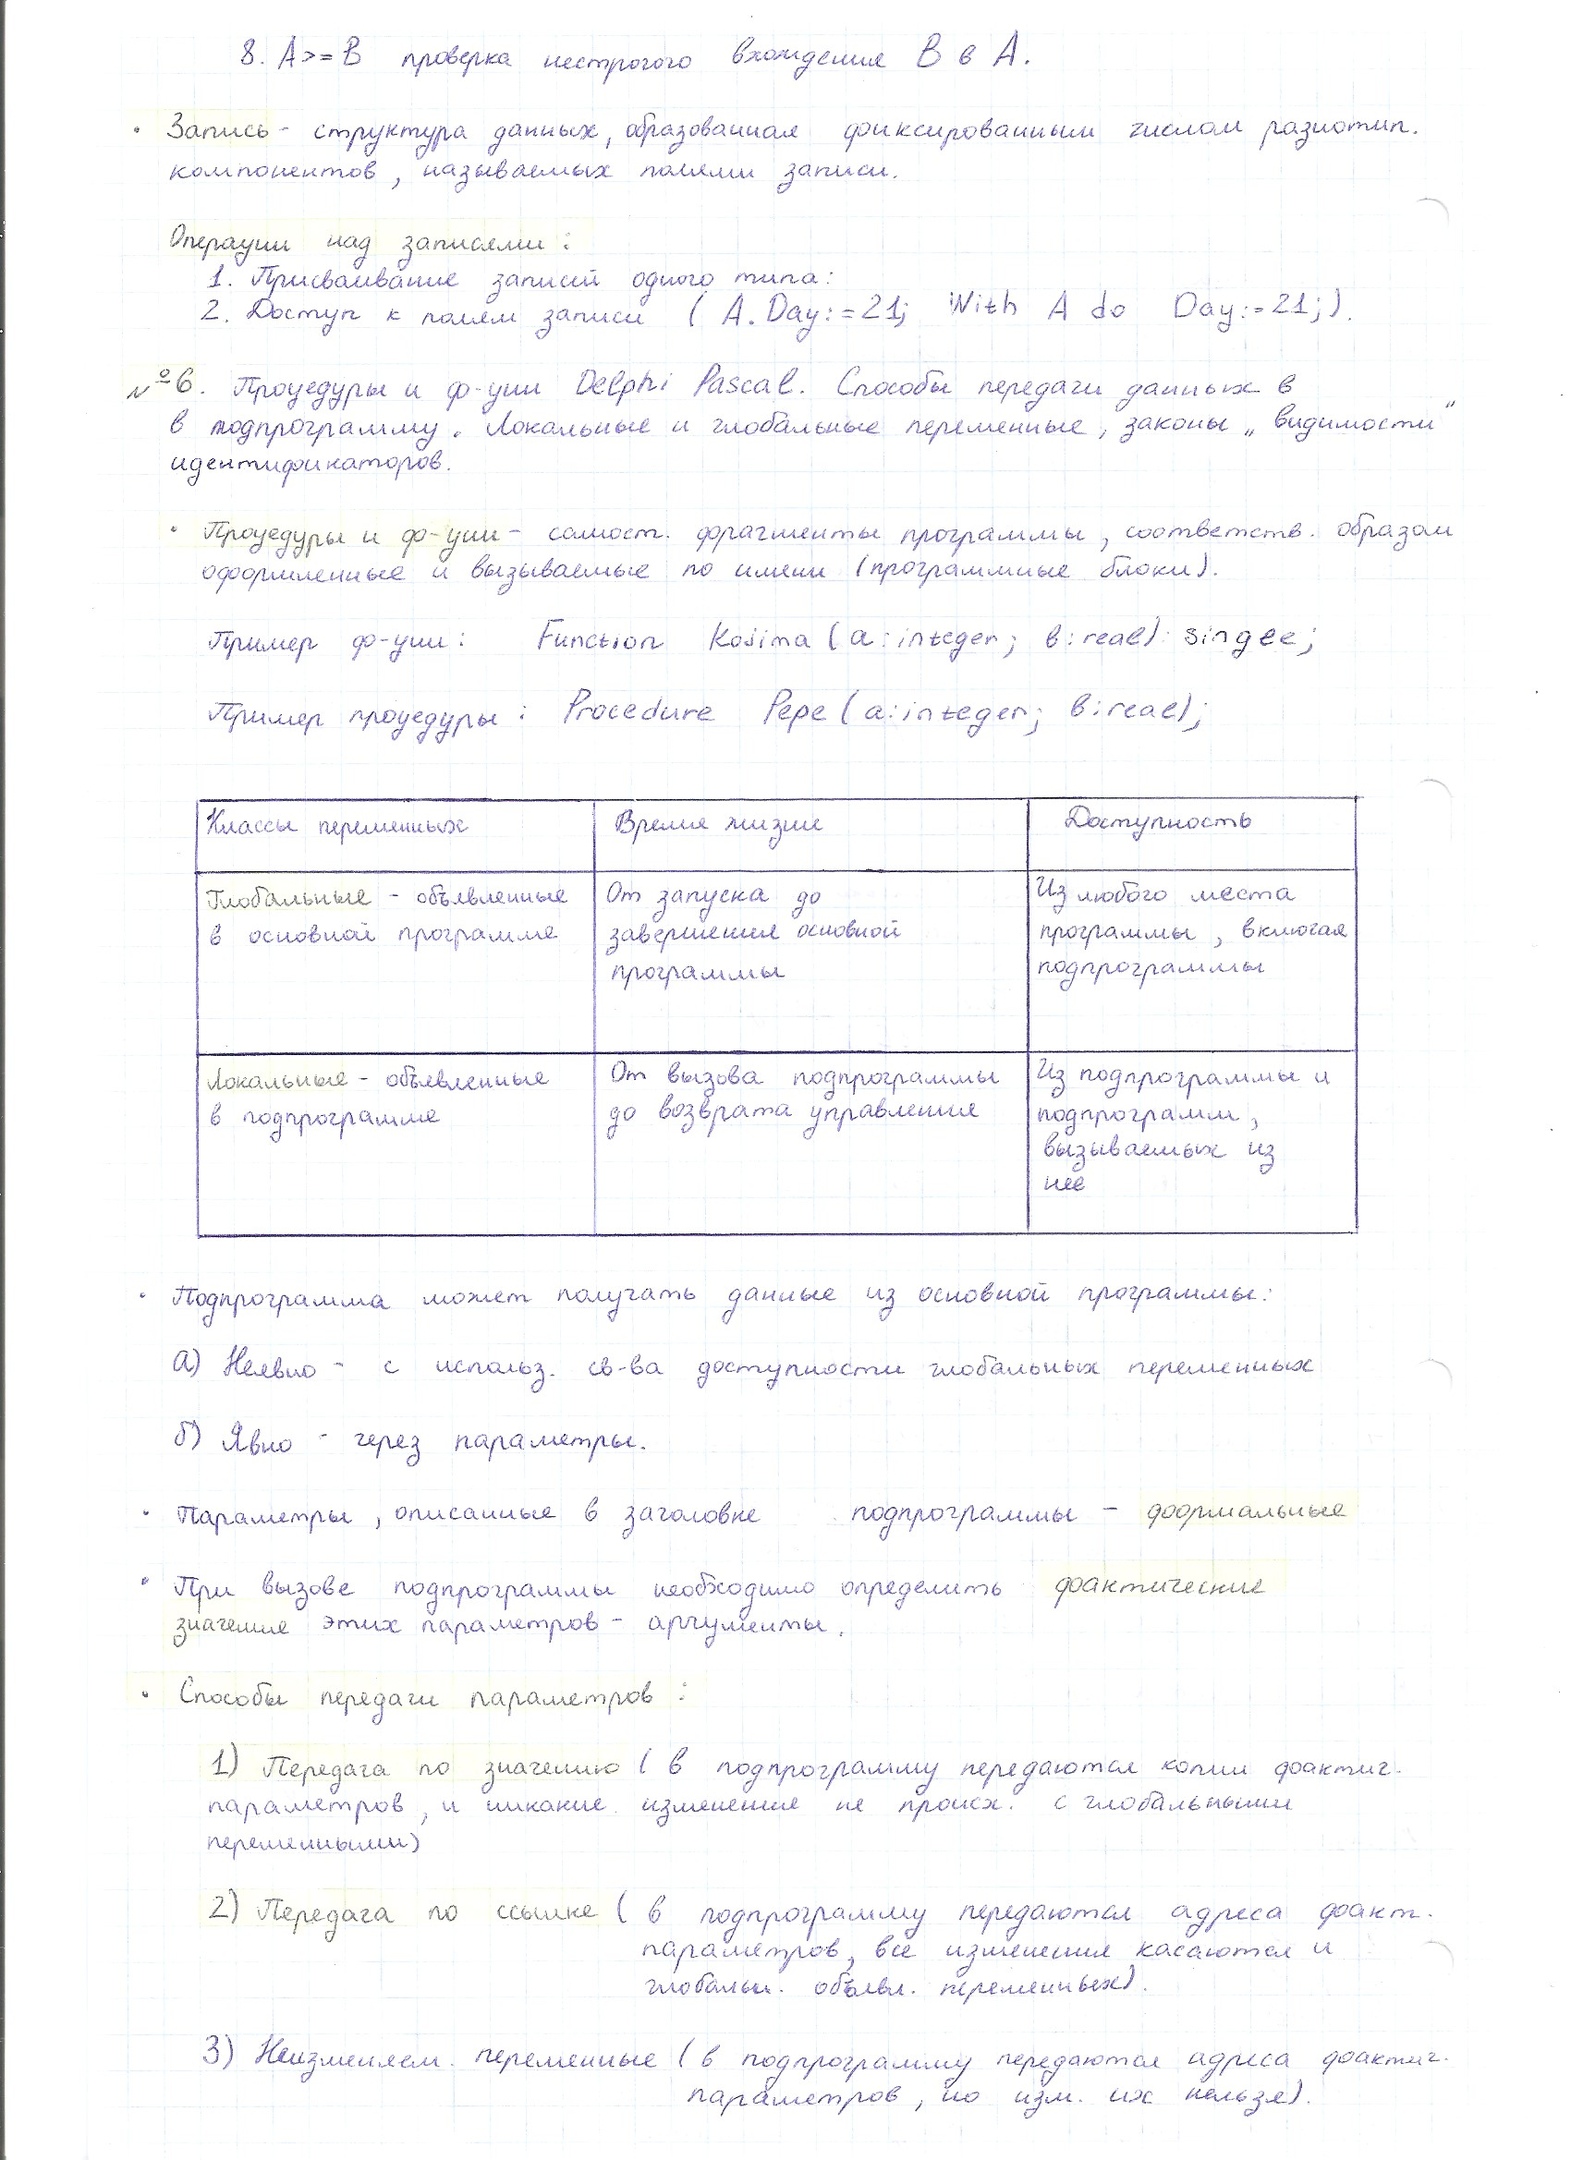 8. A>=B проверка нестрогого вхождения B в A.
· Запись - структура данных, образованная фиксированным числом разнотип.
компонентов, называемых полями записи.
Операции над записями:
1. Присваивание записей одного типа:
2. Доступ к полям записи ( A.Day:=21; With A do Day:=21;).
№6. Процедуры и ф-ции Delphi Pascal. Способы передачи данных в
в подпрограмму. Локальные и глобальные переменные, законы „видимости“
идентификаторов.
· Процедуры и ф-ции - самост. фрагменты программы, соответств. образом
оформленные и вызываемые по имени (программные блоки).
Пример ф-ции: Function Kosima (a:integer; b:real): single;
Пример процедуры: Procedure Pepe (a:integer; b:real);
Классы переменных Время жизни Доступность
Глобальные - объявленные
в основной программе
От запуска до
завершения основной
программы
Из любого места
программы, включая
подпрограммы
Локальные - объявленные
в подпрограмме
От вызова подпрограммы
до возврата управления
Из подпрограммы и
подпрограмм,
вызываемых из
нее
· Подпрограмма может получать данные из основной программы:
а) Неявно - с использ. св-ва доступности глобальных переменных
б) Явно - через параметры.
· Параметры, описанные в заголовке подпрограммы - формальные
· При вызове подпрограммы необходимо определить фактические
значения этих параметров - аргументы.
· Способы передачи параметров:
1) Передача по значению ( в подпрограмму передаются копии фактич.
параметров, и никакие изменения не происх. с глобальными
переменными)
2) Передача по ссылке ( в подпрограмму передаются адреса факт.
параметров, все изменения касаются и
глобальн. объявл. переменных).
3) Неизменяем. переменные ( в подпрограмму передаются адреса фактич.
параметров, но изм. их нельзя).